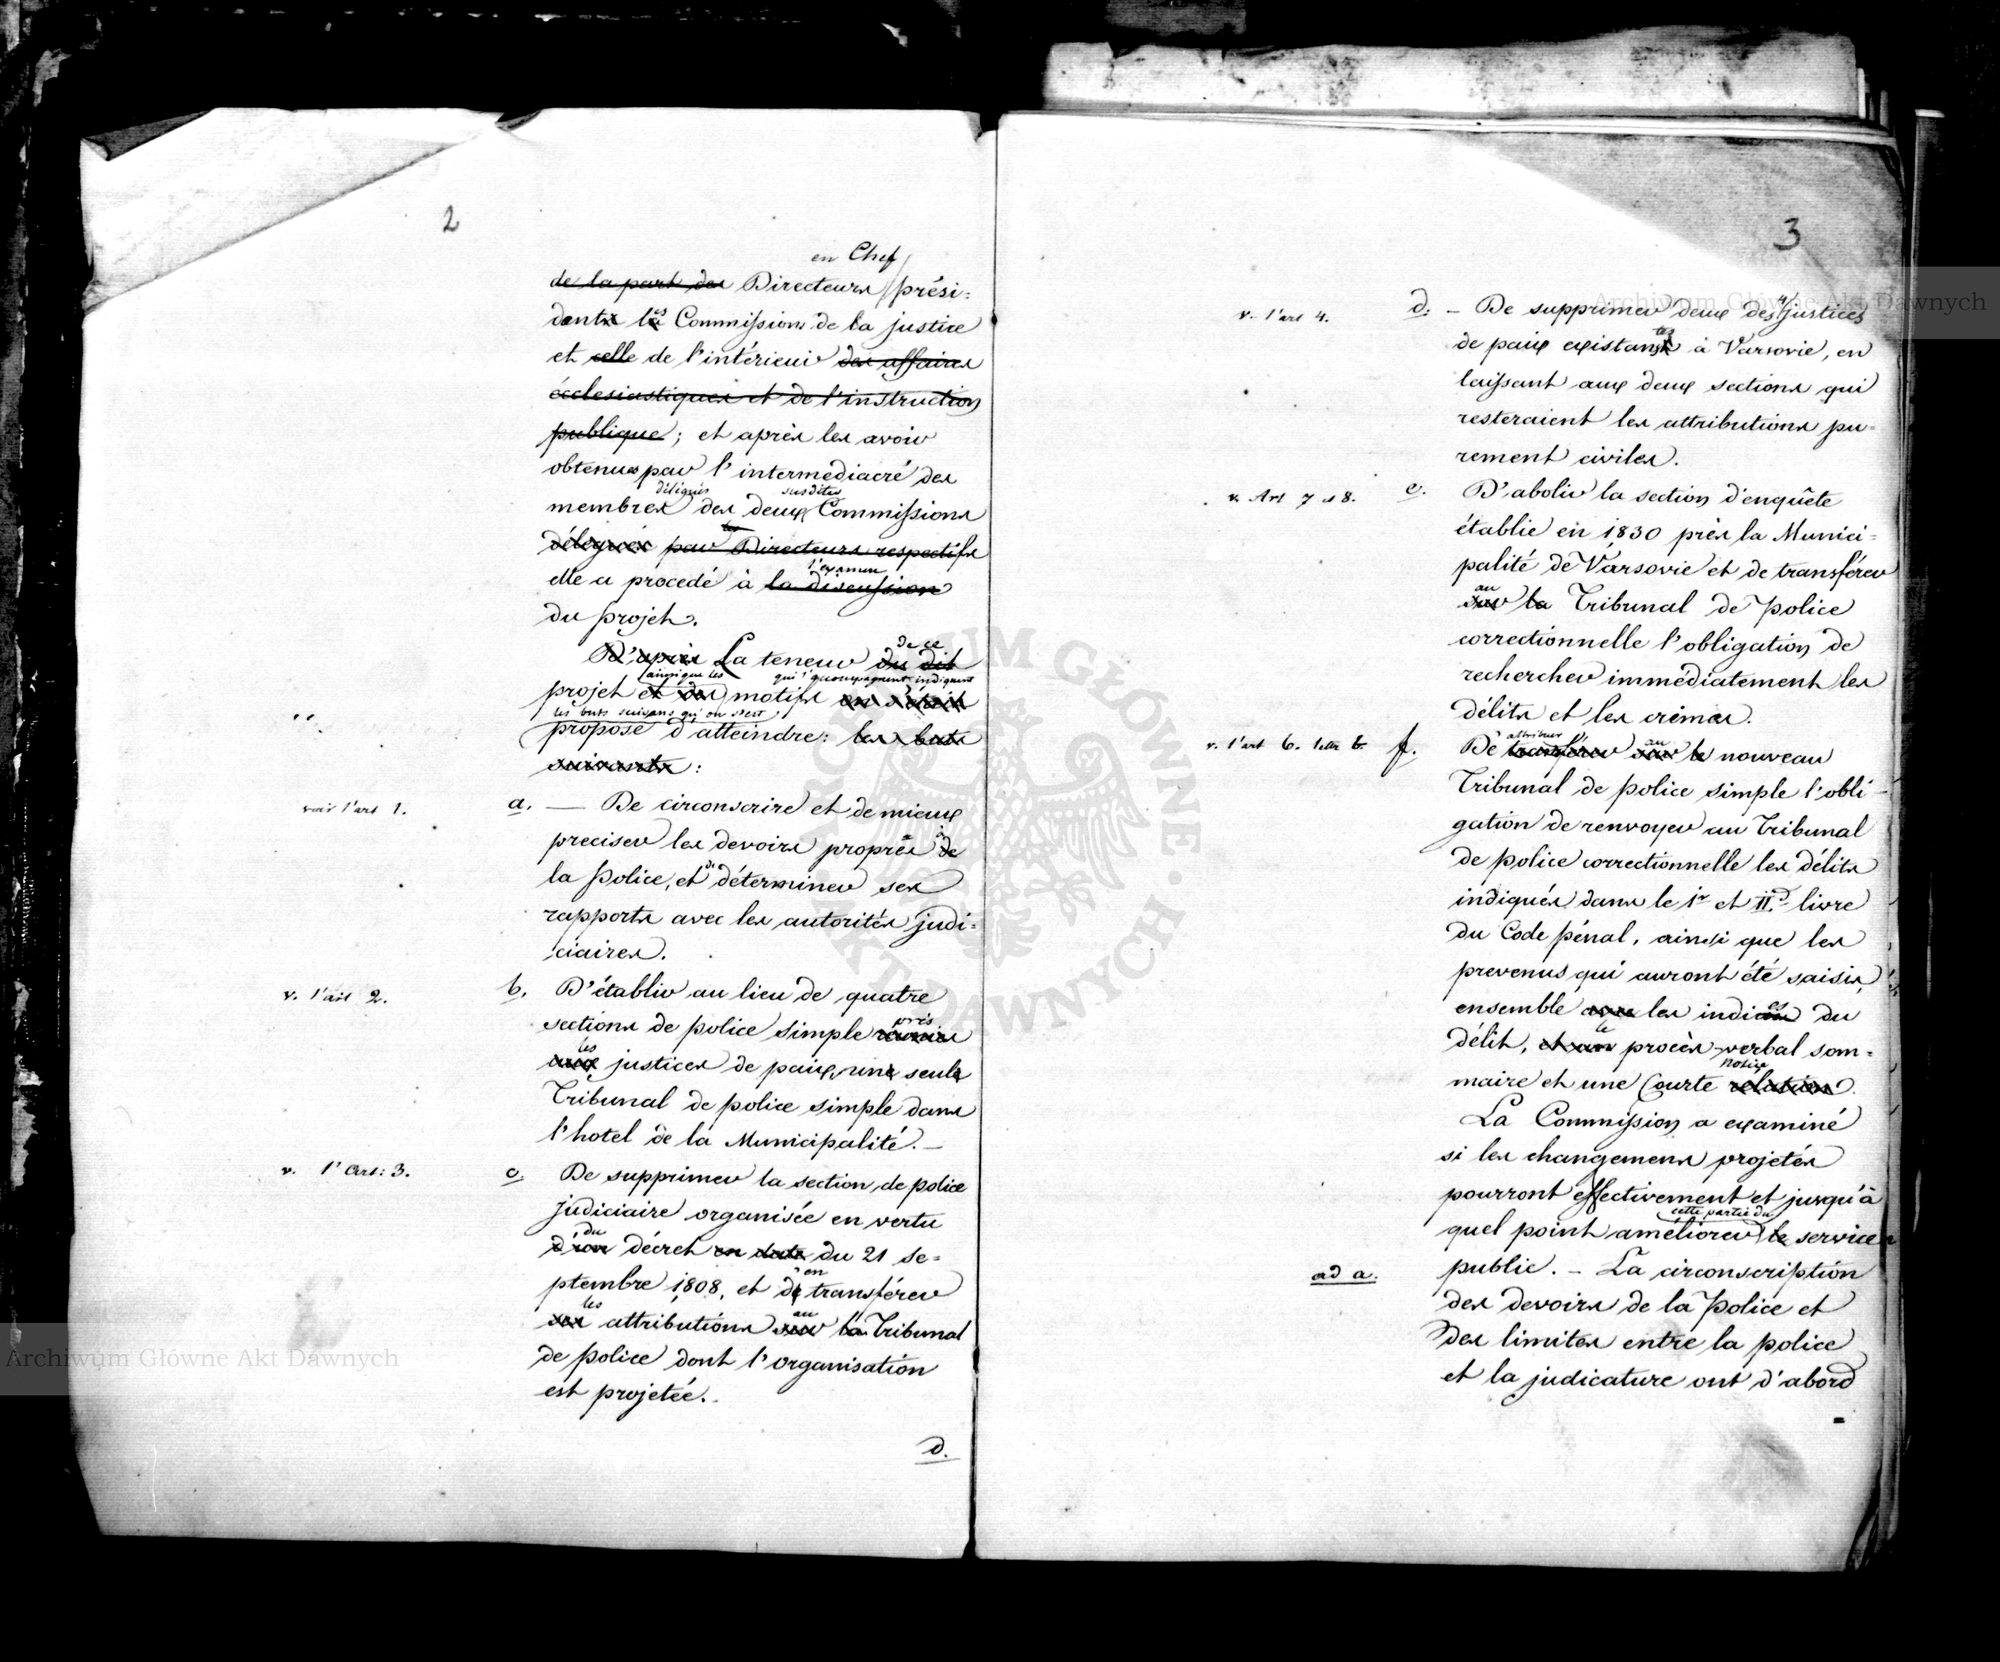 2
en Chef
de la part des Directeurs prési-
dents les Commissions de la justice
et celle de l'intérieur des affaires
écclesiastiques et de l'instruction
publique; et après les avoir
obtenues par l'intermédiacré des
délégués susdites
membres des deux Commissions
délégués par les Directeurs respectifs
l'examen
elle a procedé à la discussion
du projet.
de ce
D'après La teneur du dit
ainsi que les qui l'accompagnent indiquent
projet et des motifs on s'était
les buts suivans qu'on s'est
proposé d'atteindre: les buts
suivants:
voir l'art 1.
a. — De circonscrire et de mieux
à
preciser les devoirs propres de
la police, et de déterminer ses
rapports avec les autorités judi-
ciaires.
v. l'art 2.
b. D'établir au lieu de quatre
près
sections de police simple réunies
les
aux justices de paix, une seule
Tribunal de police simple dans
l'hotel de la Municipalité. —
v. l'Art: 3.
c. De supprimer la section de police
judiciaire organisée en vertu
du
d'un décret en date du 21 se-
en
ptembre 1808, et de transférer
les au
ses attributions sur la Tribunal
de police dont l'organisation
est projetée.
d.
3
v. l'art 4.
d. — De supprimer deux des justices
tes
de paix existans à Varsovie, en
laissant aux deux sections qui
resteraient les attributions pu-
rement civiles.
v. Art 7 et 8.
e. D'abolir la section d'enquête
établie en 1830 près la Munici-
palité de Varsovie et de transférer
au
sur la Tribunal de police
correctionnelle l'obligation de
rechercher immédiatement les
délits et les crimes.
v. l'art 6. lettr b.
attribuer au
f. De transférer sur le nouveau
Tribunal de police simple l'obli-
gation de renvoyer au Tribunal
de police correctionnelle les délits
indiqués dans le 1r et IId livre
du Code pénal, ainsi que les
prevenus qui auront été saisis,
es
ensemble avec les indices du
le
délit, et un procès-verbal som-
notice
maire et une Courte relation.
La Commission a examiné
si les changemens projetés
pourront effectivement et jusqu'à
cette partie du
quel point améliorer le service
ad a.
public. — La circonscription
des devoirs de la police et
des limites entre la police
et la judicature ont d'abord
Archiwum Główne Akt Dawnych
Archiwum Główne Akt Dawnych
ARCHIWUM GŁÓWNE AKT DAWNYCH